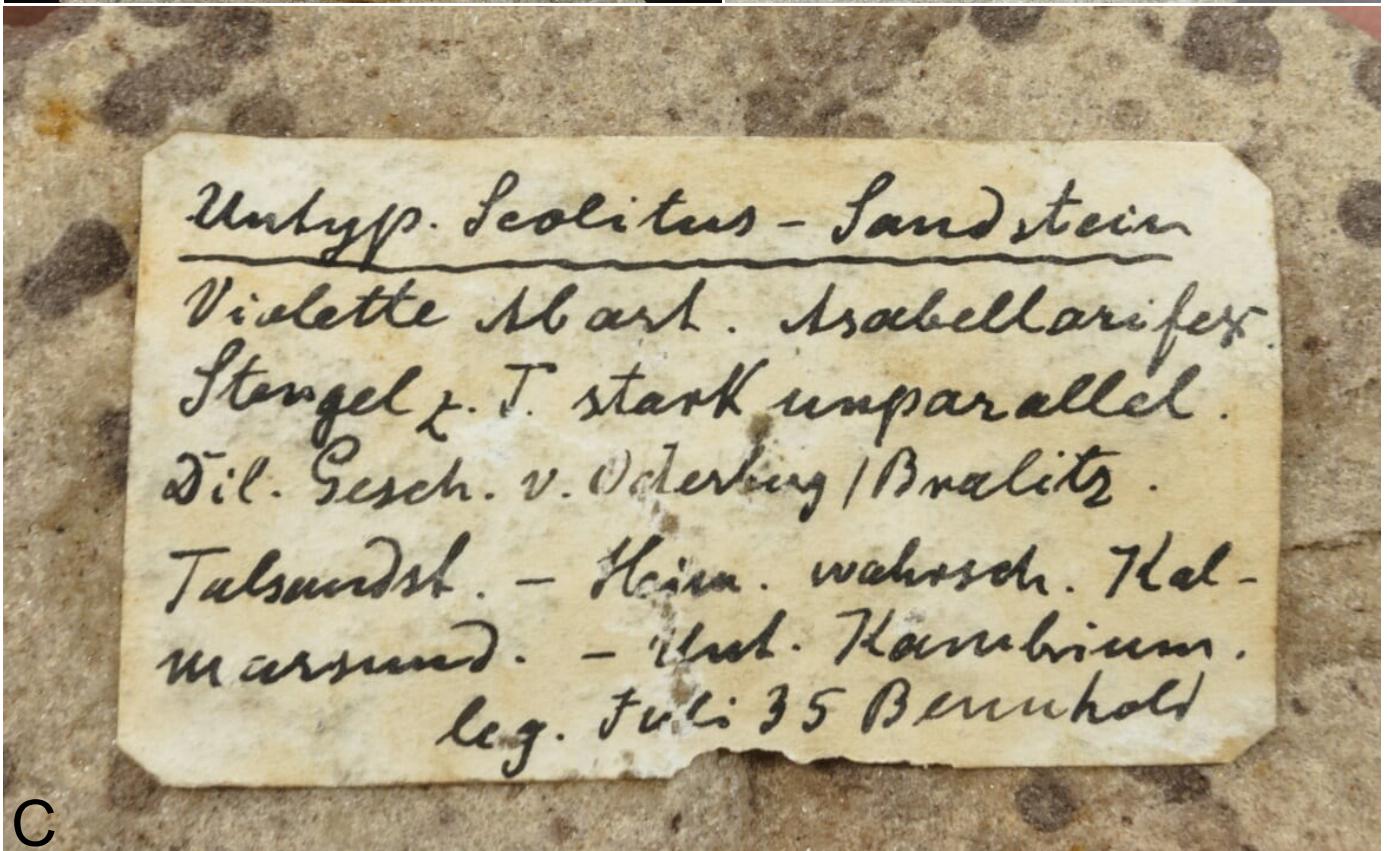 Untyp. Scolitus - Sandstein
Violette Abart. Isabellarifex.
Stengel z. T. stark unparallel.
Dil. Gesch. v. Oderberg / Bralitz.
Talsandst. - Heim. wahrsch. Kal-
marsund. - Unt. Kambrium.
leg. Juli 35 Bennhold
C